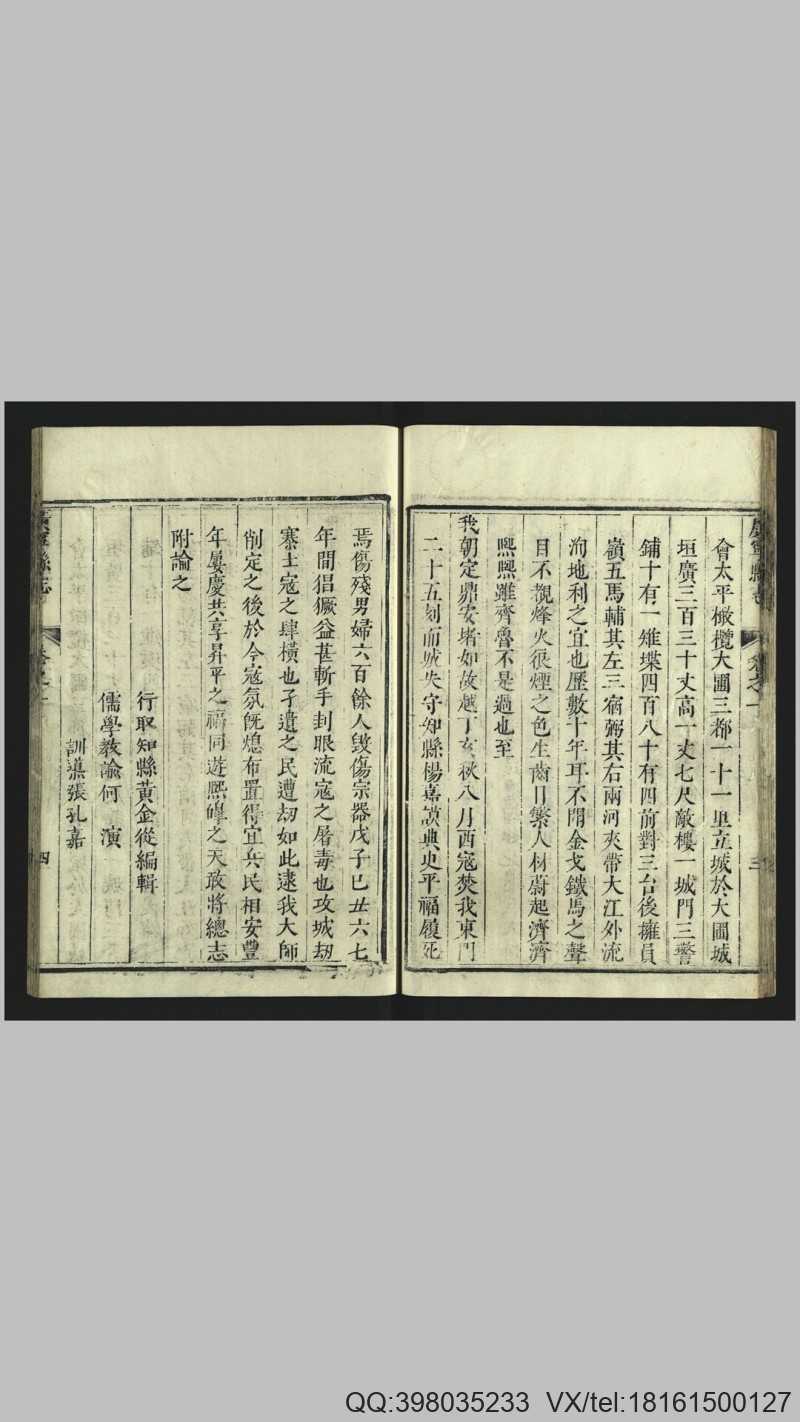 會太平橄欖大圃三都一十一里立城於大圃城
垣廣三百三十丈高一丈七尺敵樓一城門三警
鋪十有一雉堞四百八十有四前對三台後擁員
嶺五馬輔其左三宿弼其右兩河夾帶大江外流
洵地利之宜也歷數十年耳不聞金戈鐵馬之聲
目不覩烽火狼煙之色生齒日繁人材蔚起濟濟
熙熙雖齊魯不是過也至
我朝定鼎安堵如故越丁亥秋八月西寇焚我東門
二十五刻而城失守知縣楊嘉謨典史平福履死
焉傷殘男婦六百餘人毀傷宗器戊子巳丑六七
年間猖獗益甚斬手刲眼流寇之屠毒也攻城刼
寨土寇之肆橫也孑遺之民遭刼如此逮我大師
削定之後於今寇氛既熄布置得宜兵民相安豐
年屢慶共享昇平之福同遊熙皥之天敢將總志
附論之
行取知縣黃金從編輯
儒學教諭何　演
訓導張孔嘉
四
QQ:398035233 VX/tel:18161500127